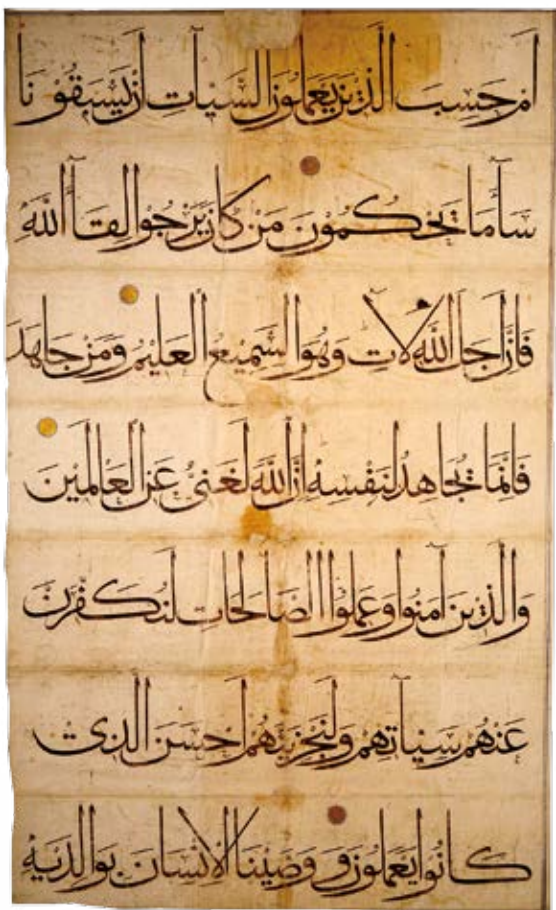 اَمْ حَسِبَ الَّذِينَ يَعْمَلُونَ السَّيِّاٰتِ اَنْ يَسْبِقُوْنَا
سَآءَ مَا يَحْكُمُوْنَ مَنْ كَانَ يَرْجُوا لِقَآءَ اللّٰهِ
فَاِنَّ اَجَلَ اللّٰهِ لَاٰتٍ وَهُوَ السَّمِيْعُ الْعَلِيْمُ وَمَنْ جَاهَدَ
فَاِنَّمَا يُجَاهِدُ لِنَفْسِهٖ اِنَّ اللّٰهَ لَغَنِىٌّ عَنِ الْعَالَمِيْنَ
وَالَّذِيْنَ اٰمَنُوْا وَعَمِلُوا الصَّالِحَاتِ لَنُكَفِّرَنَّ
عَنْهُمْ سَيِّاٰتِهِمْ وَلَنَجْزِيَنَّهُمْ اَحْسَنَ الَّذِىْ
كَانُوْا يَعْمَلُوْنَ وَ وَصَّيْنَا الْاِنْسَانَ بِوَالِدَيْهِ